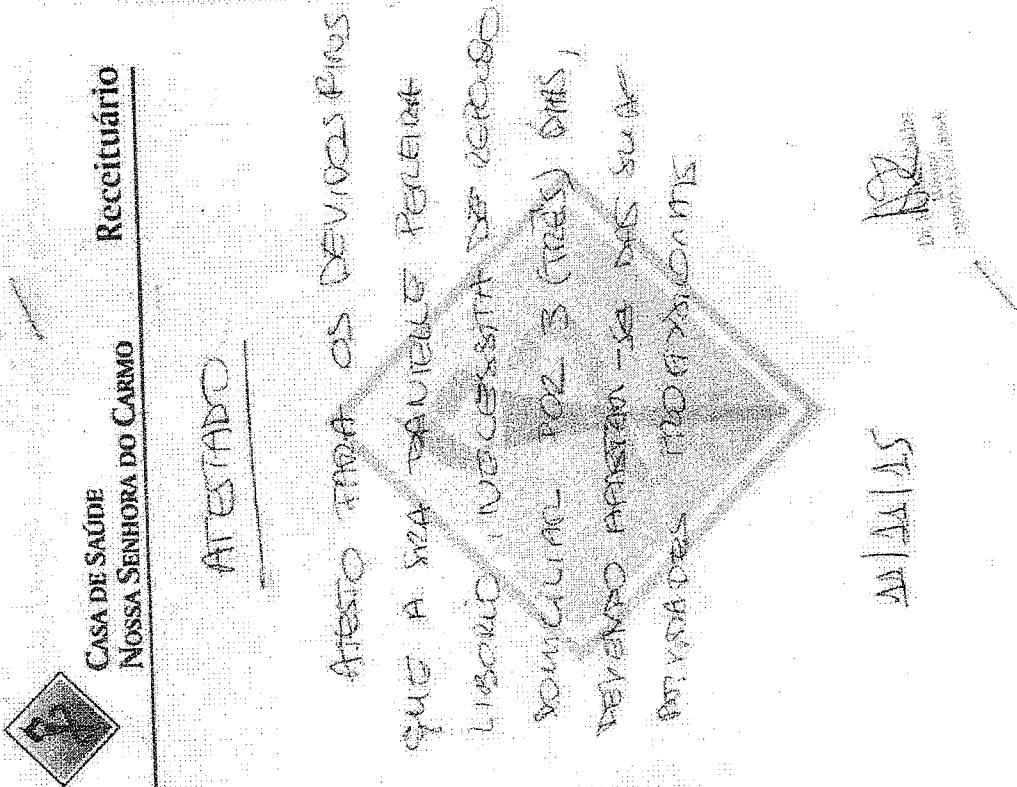 CASA DE SAÚDE
NOSSA SENHORA DO CARMO
Receituário
ATESTADO
ATESTO PARA OS DEVIDOS FINS
QUE A SRA DANIELLE PEREIRA
LIBORIO, NECESSITA DE REPOUSO
DOMICILIAR POR 3 (TRÊS) DIAS,
DEVENDO AFASTAR-SE DAS SUAS
ATIVIDADES PROFISSIONAIS
11/11/15